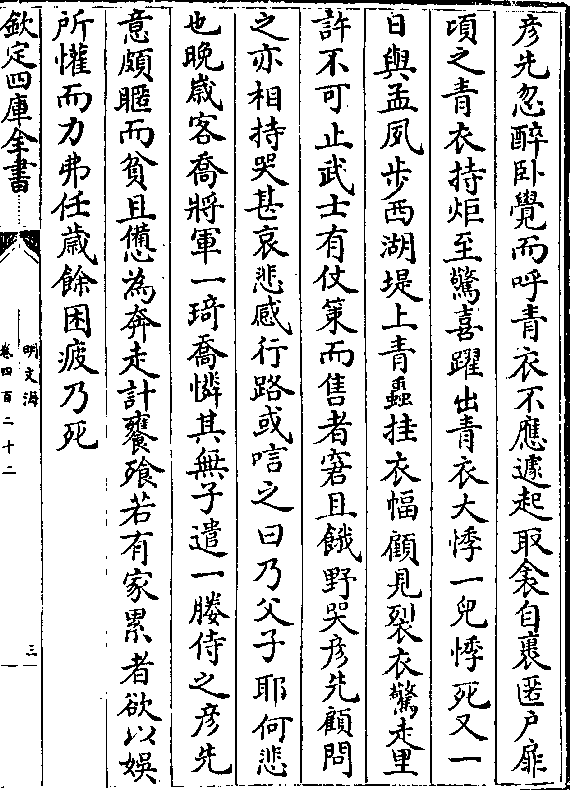 彦先忽醉卧覺而呼青衣不應遽起取衾自裹匿户扉
頃之青衣持炬至驚喜躍出青衣大悸一兒悸死又一
日與孟夙步西湖堤上青蟲挂衣幅顧見裂衣驚走里
許不可止武士有仗策而售者窘且餓野哭彦先顧問
之亦相持哭甚哀悲感行路或唁之曰乃父子耶何悲
也晚嵗客喬將軍一琦喬憐其無子遣一媵侍之彦先
意頗暱而貧且憊為奔走計饔飱若有家累者欲以娱
所懽而力弗任嵗餘困疲乃死
欽定四庫全書
明文海
卷四百二十二
三